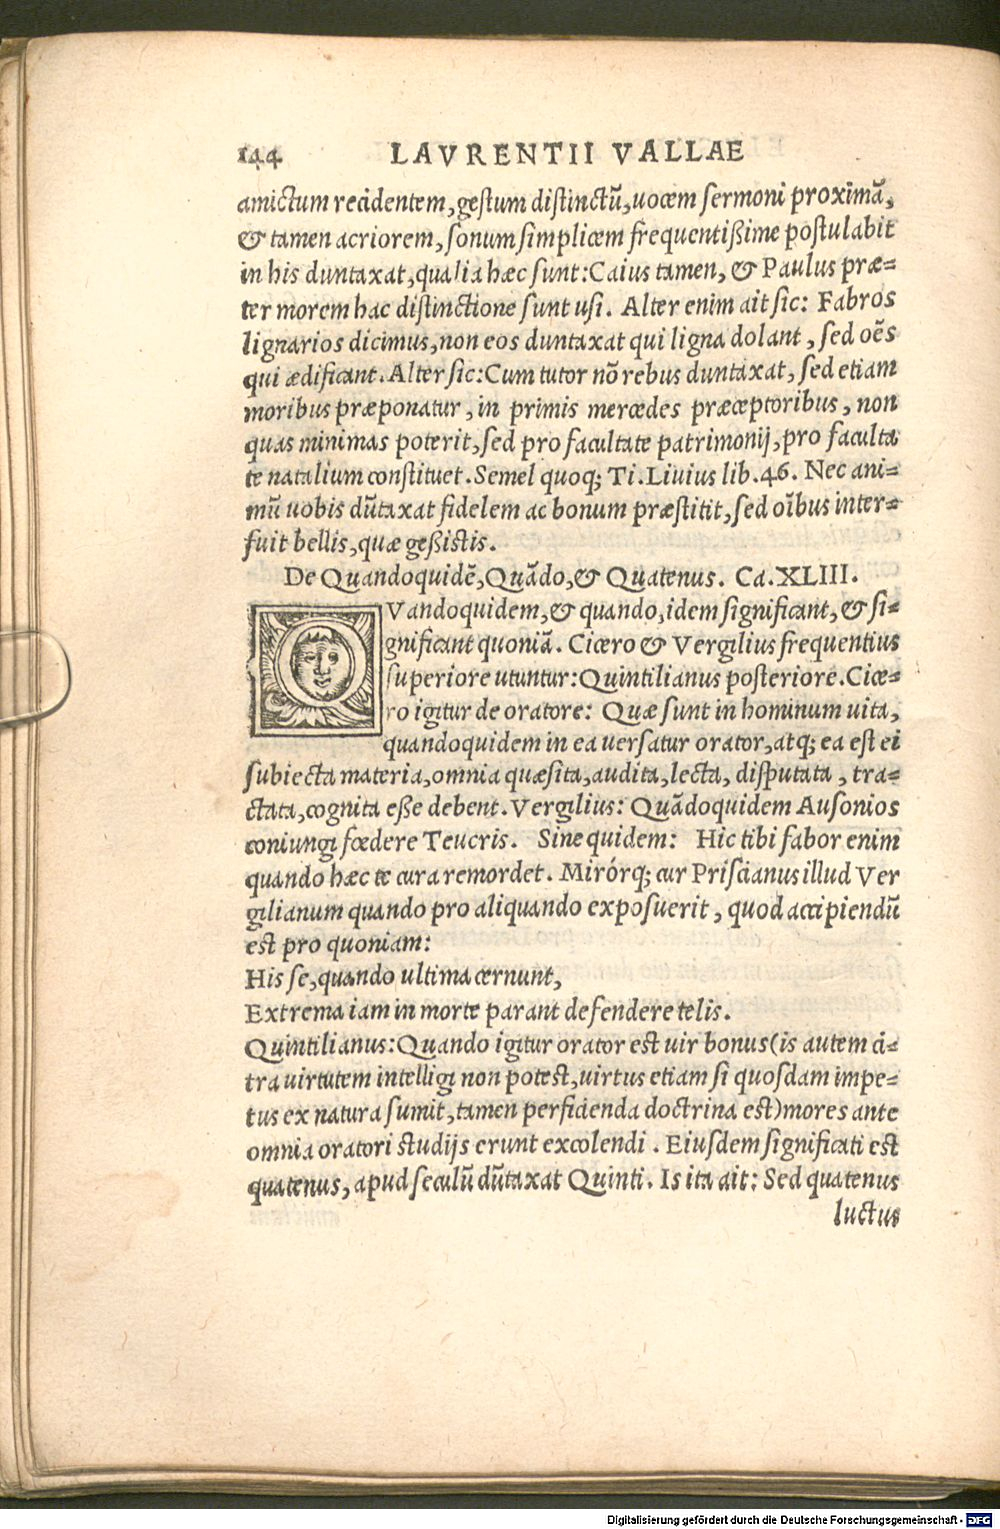 144 LAVRENTII VALLAE
amictum recidentem, gestum distinctũ, uocem sermoni proximã,
& tamen acriorem, sonum simplicem frequentißime postulabit
in his duntaxat, qualia hæc sunt: Caius tamen, & Paulus præ=
ter morem hac distinctione sunt usi. Alter enim ait sic: Fabros
lignarios dicimus, non eos duntaxat qui ligna dolant, sed oẽs
qui ædificant. Alter sic: Cum tutor nõ rebus duntaxat, sed etiam
moribus præponatur, in primis mercedes præceptoribus, non
quas minimas poterit, sed pro facultate patrimonij, pro faculta
te natalium constituet. Semel quoq; Ti. Liuius lib. 46. Nec ani=
mũ uobis dũtaxat fidelem ac bonum præstitit, sed oĩbus inter=
fuit bellis, quæ geßistis.
De Quandoquidẽ, Quãdo, & Quatenus. Ca. XLIII.
QVandoquidem, & quando, idem significant, & si=
gnificant quoniã. Cicero & Vergilius frequentius
superiore utuntur: Quintilianus posteriore. Cice=
ro igitur de oratore: Quæ sunt in hominum uita,
quandoquidem in ea uersatur orator, atq; ea est ei
subiecta materia, omnia quæsita, audita, lecta, disputata, tra=
ctata, cognita eße debent. Vergilius: Quãdoquidem Ausonios
coniungi fœdere Teucris. Sine quidem: Hic tibi fabor enim
quando hæc te cura remordet. Mirórq; cur Priscianus illud Ver
gilianum quando pro aliquando exposuerit, quod accipiendũ
est pro quoniam:
His se, quando ultima cernunt,
Extrema iam in morte parant defendere telis.
Quintilianus: Quando igitur orator est uir bonus (is autem ci=
tra uirtutem intelligi non potest, uirtus etiam si quosdam impe=
tus ex natura sumit, tamen perficienda doctrina est) mores ante
omnia oratori studijs erunt excolendi. Eiusdem significati est
quatenus, apud seculũ dũtaxat Quinti. Is ita ait: Sed quatenus
luctus
Digitalisierung gefördert durch die Deutsche Forschungsgemeinschaft - DFG